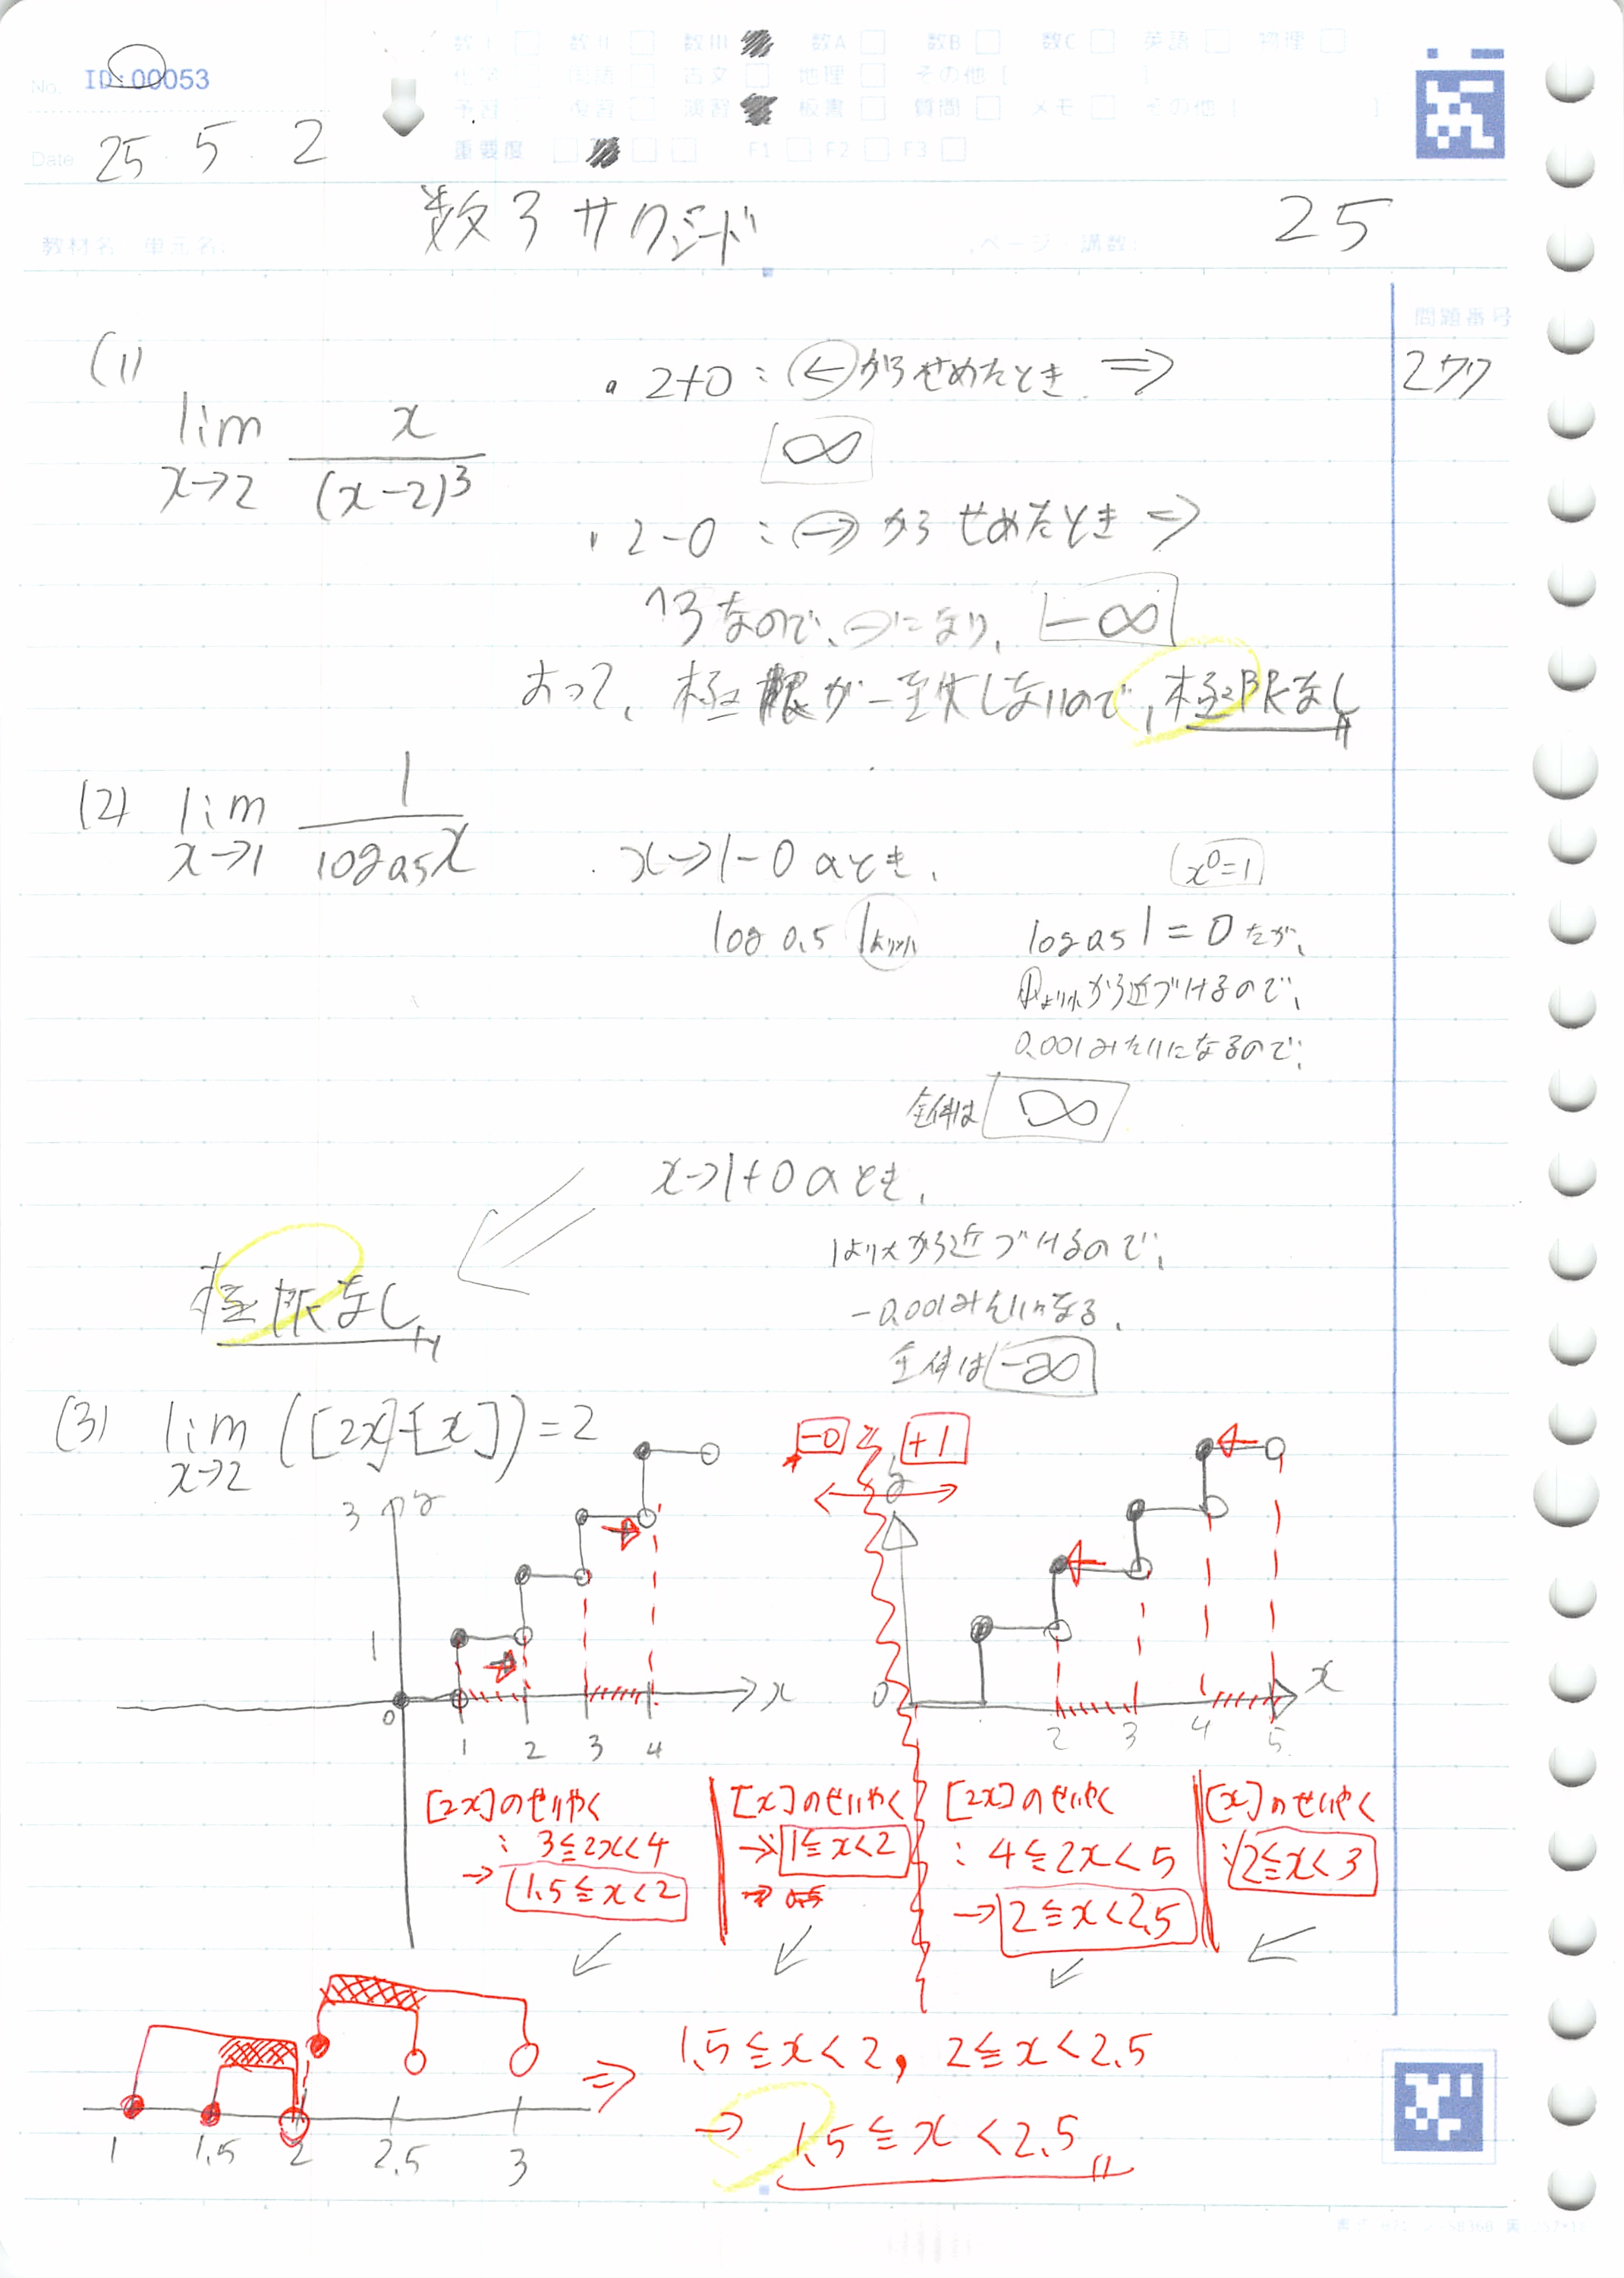 No. ID:00053
数I 数II 数III 数A 数B 数C 英語 物理
化学 国語 古文 地理 その他 [ ]
予習 復習 演習 板書 質問 メモ その他 [ ]
Date 25・5・2
重要度 F1 F2 F3
数3サクシード 25
教材名 単元名: ページ 講数:
問題番号
277
(1)
lim x→2 x/(x-2)^3
・2+0:(←)からせめたとき ⇒
∞
・2-0:(→)からせめたとき ⇒
^3なので、⊖になり、-∞
よって、極限が一致しないので、極限なし
(2) lim x→1 1/log0.5x
・x→1-0のとき、 x^0=1
log0.5 1より小 log0.5 1=0だが、
1より小から近づけるので、
0.001みたいになるので、
全体は ∞
x→1+0のとき、
1より大から近づけるので、
-0.001みたいになる、
全体は -∞
極限なし
(3) lim x→2 ([2x]-[x])=2
-0 +1
3 y y
1
0 1 2 3 4 x
0 2 3 4 5 x
[2x]のせいやく [x]のせいやく [2x]のせいやく [x]のせいやく
:3≦2x<4 →1≦x<2 :4≦2x<5 :2≦x<3
→1.5≦x<2 →2≦x<2.5
1 1.5 2 2.5 3
⇒ 1.5≦x<2, 2≦x<2.5
→ 1.5≦x<2.5